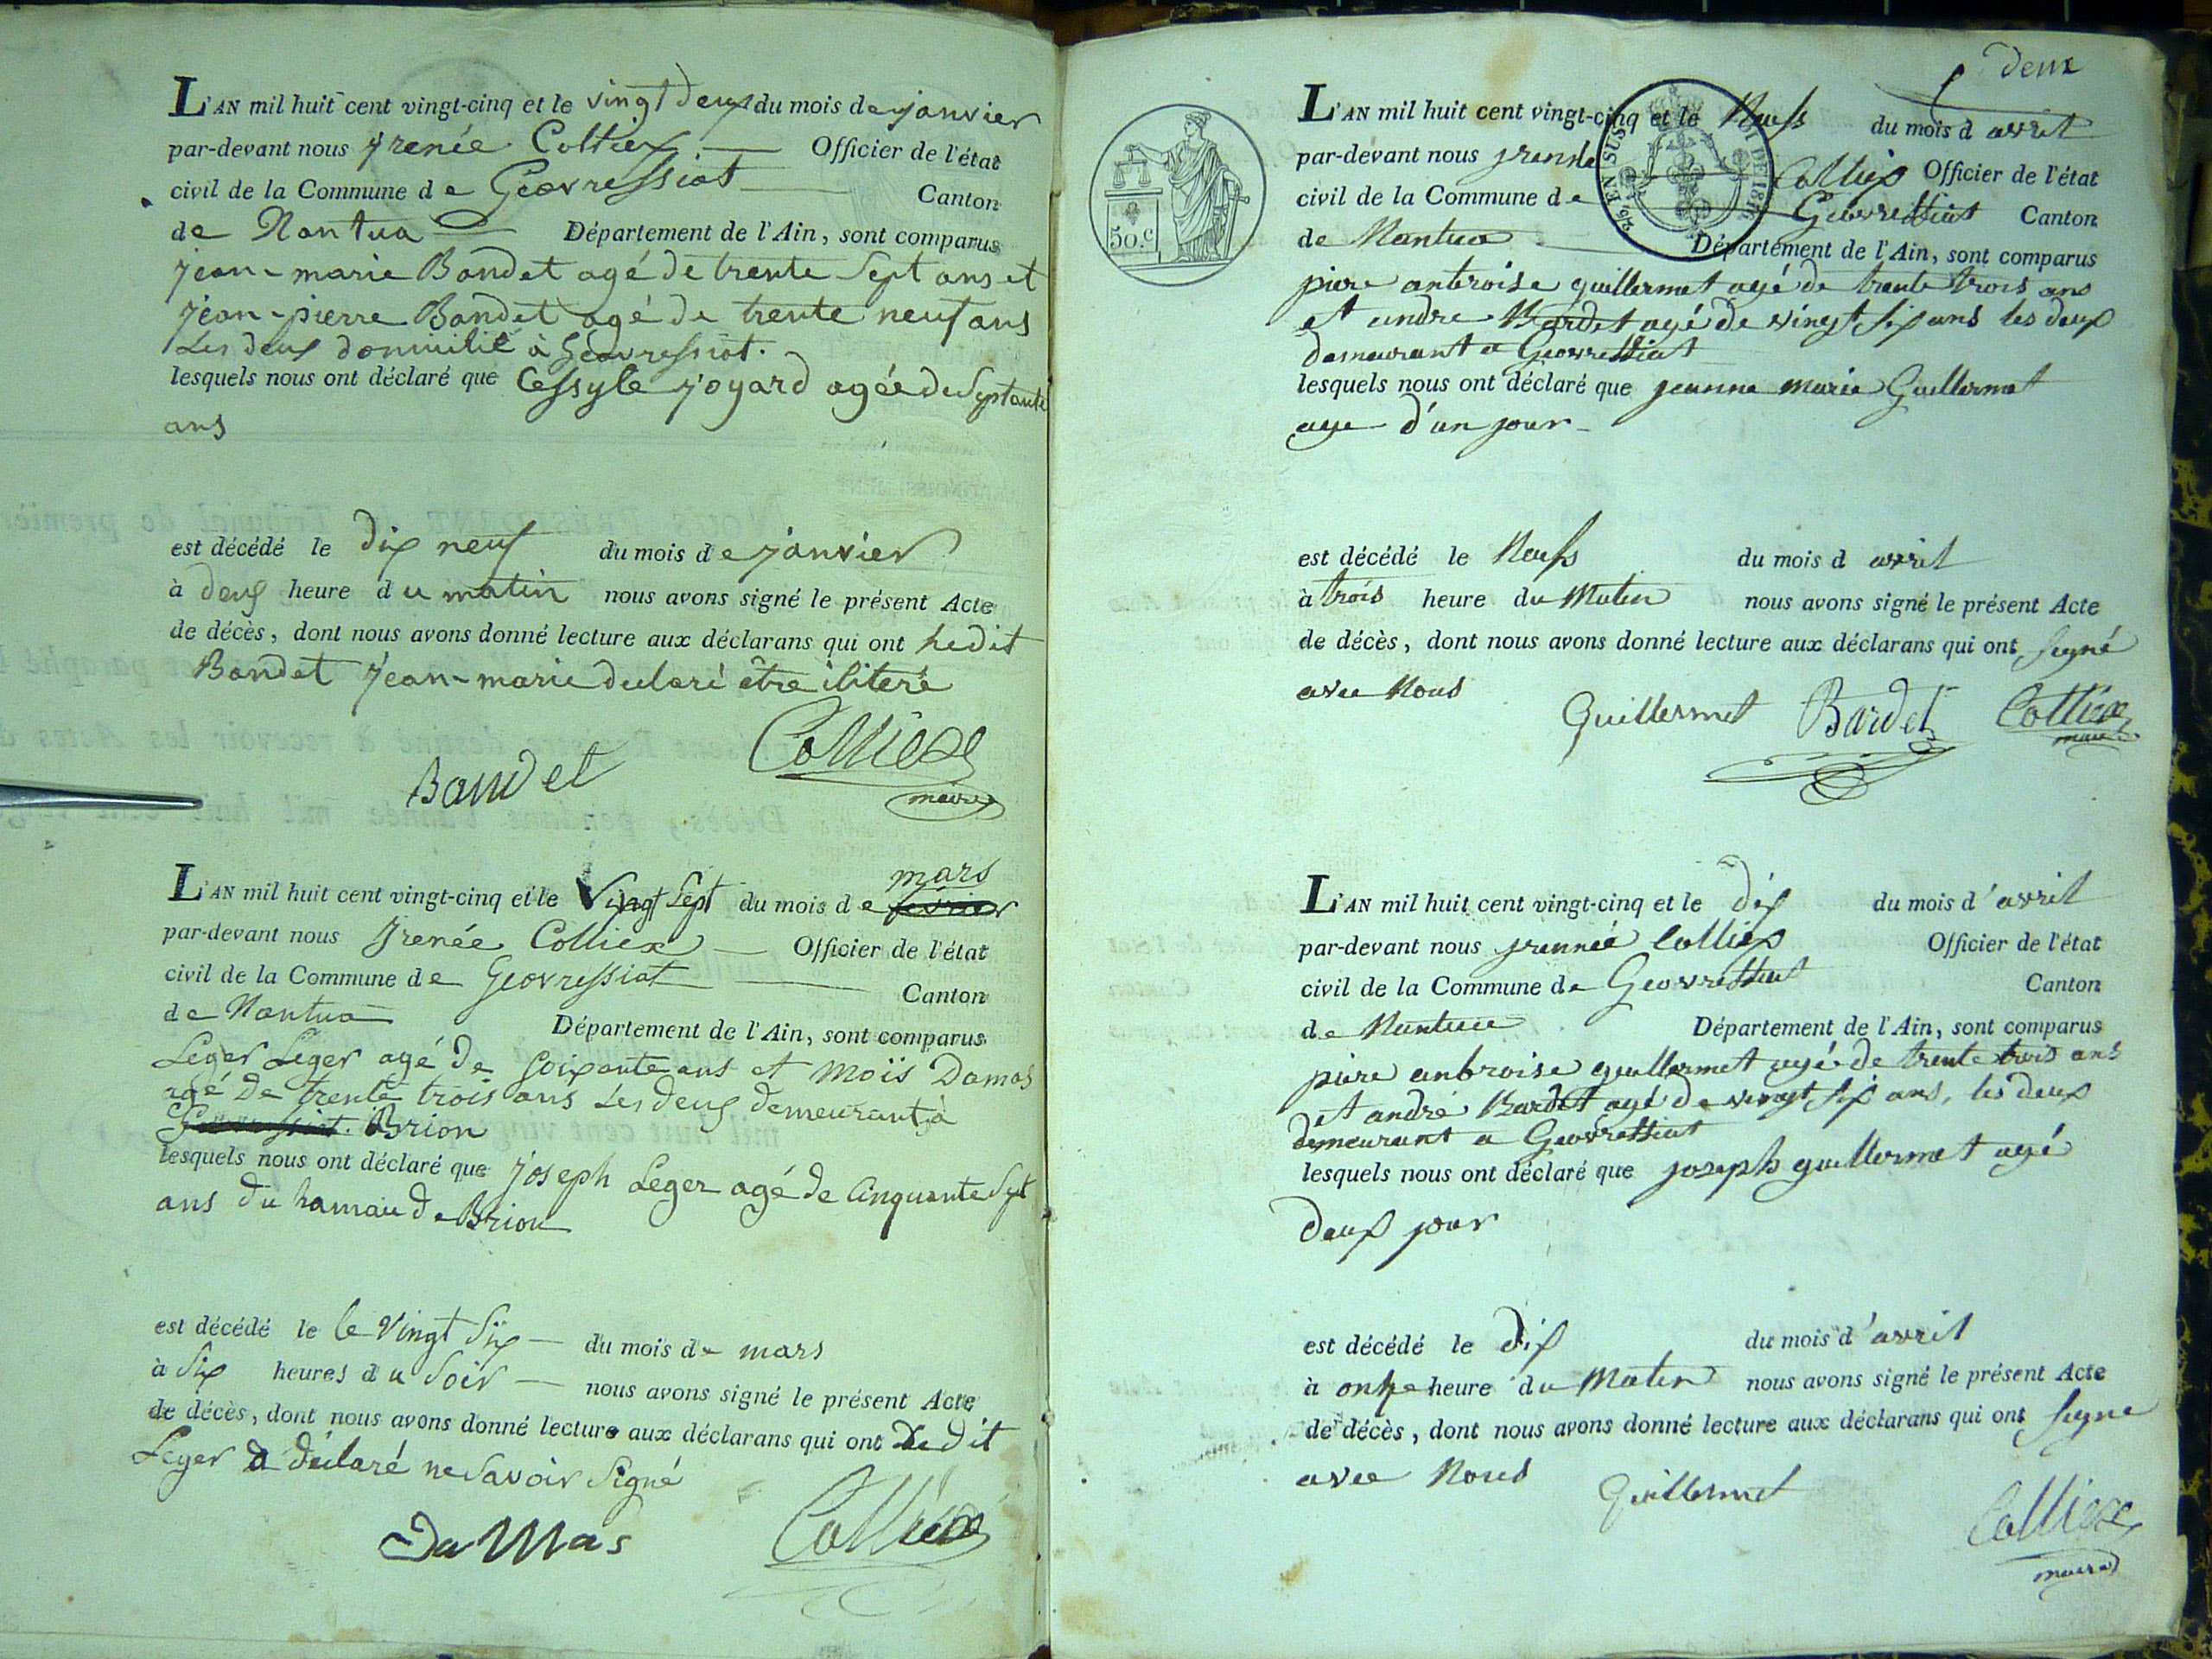 L'AN mil huit cent vingt-cinq et le vingt deux du mois de janvier
par-devant nous jrenée Colliex Officier de l'état
civil de la Commune de Géovressiat Canton
de Nantua Département de l'Ain, sont comparus
jean-marie Bondet agé de trente Sept ans et
jean-pierre Bondet agé de trente neuf ans
Les deux domicilié à Géovressiat.
lesquels nous ont déclaré que Cessyle joyard agée de Septante
ans
est décédé le dix neuf du mois de janvier
à deux heure du matin nous avons signé le présent Acte
de décès, dont nous avons donné lecture aux déclarans qui ont ledit
Bondet jean-marie declaré être iliteré
Bondet Colliex
maire
L'AN mil huit cent vingt-cinq et le Vingt Sept du mois de mars
par-devant nous Jrenée Colliex Officier de l'état
civil de la Commune de Géovressiat Canton
de Nantua Département de l'Ain, sont comparus
Leger Leger agé de Soixante ans et Moïs Damas
agé de trente trois ans Les deux demeurant à
Brion
lesquels nous ont déclaré que joseph Leger agé de Cinquante Sept
ans du hamau de Brion
est décédé le le Vingt Six du mois de mars
à Six heures du Soir nous avons signé le présent Acte
de décès, dont nous avons donné lecture aux déclarans qui ont Ledit
Leger a déclaré ne Savoir Signé
DaMas Colliex
deux
L'AN mil huit cent vingt-cinq et le Neuf du mois d avril
par-devant nous jrenée Colliex Officier de l'état
civil de la Commune de Geovressiat Canton
de Nantua Département de l'Ain, sont comparus
50.c
piere anbroise guillermet agé de trente trois ans
et andre Bardet agé de vingt six ans les deux
demeurant a Geovressiat
lesquels nous ont déclaré que jeanne marie Guillermet
age d'un jour
est décédé le Neuf du mois d avril
à trois heure du Matin nous avons signé le présent Acte
de décès, dont nous avons donné lecture aux déclarans qui ont signé
avec Nous
Guillermet Bardet Colliex
maire
L'AN mil huit cent vingt-cinq et le dix du mois d'avril
par-devant nous jrennée Colliex Officier de l'état
civil de la Commune de Geovressiat Canton
de Nantua Département de l'Ain, sont comparus
piere anbroise guillermet agé de trente trois ans
et andré Bardet agé de vingt six ans, les deux
demeurant a Geovressiat
lesquels nous ont déclaré que joseph guillermet agé
deux jour
est décédé le dix du mois d'avril
à onze heure du Matin nous avons signé le présent Acte
de décès, dont nous avons donné lecture aux déclarans qui ont signe
avec Nous
Guillermet Colliex
maire